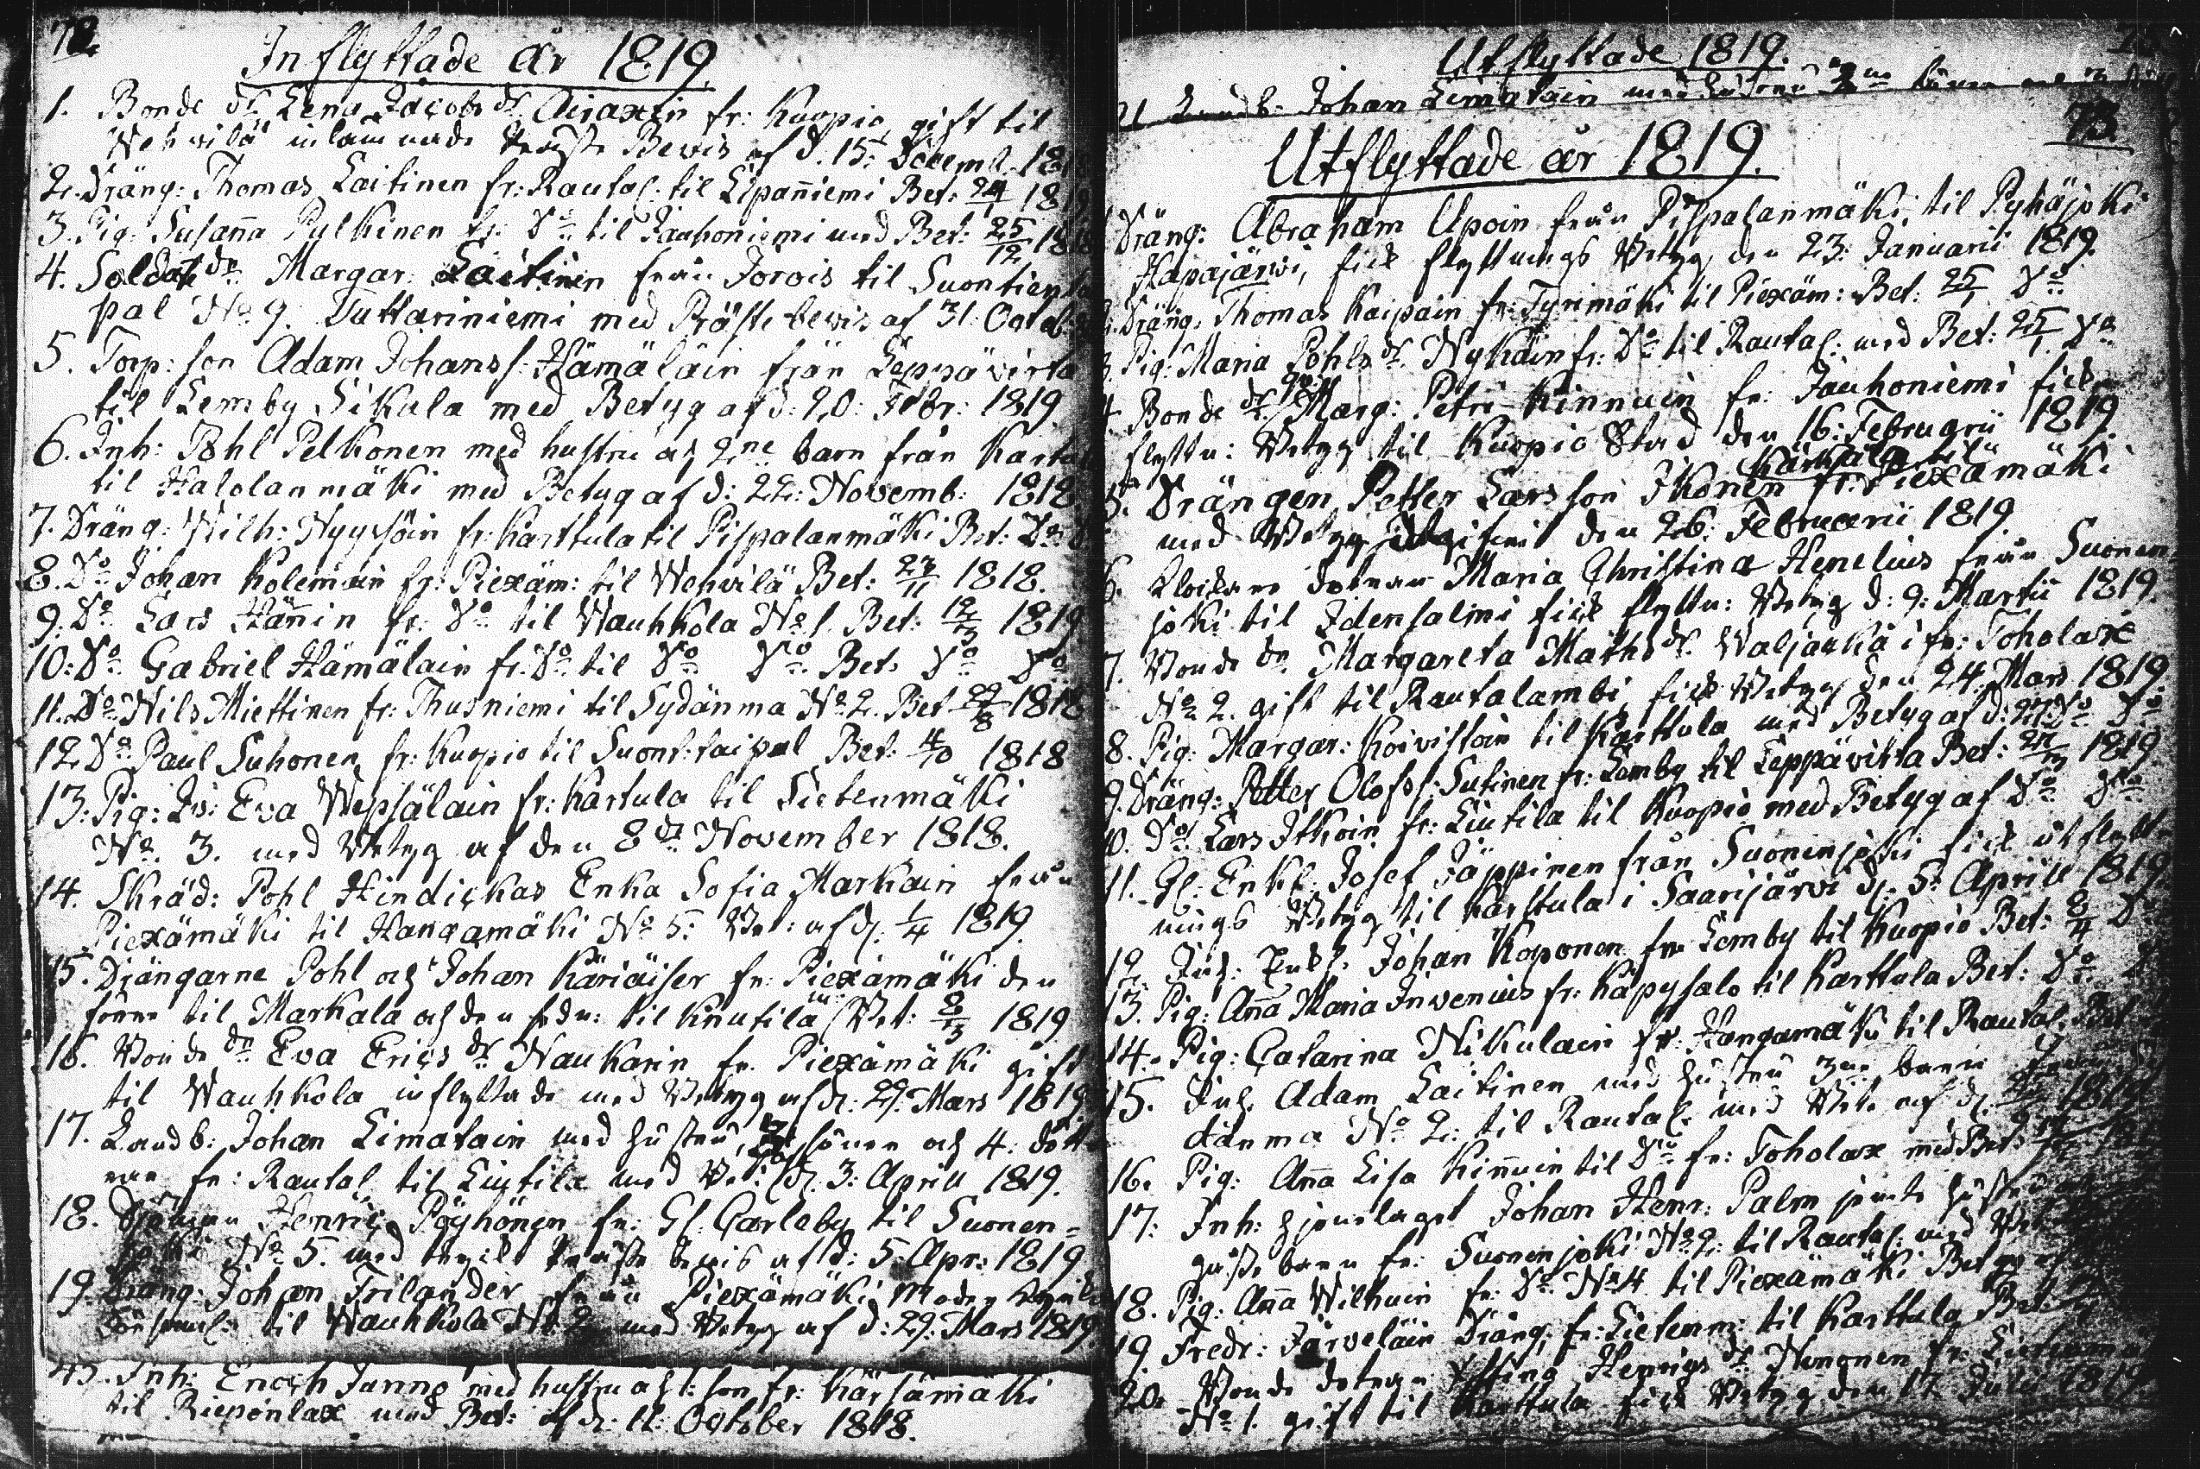 72.
Inflyttade År 1819.
1. Bonde dr. Lena Jacobsdr. Airaxin fr: Kuopio gift til
Wehvilä inlämnade Präste Bevis af d. 15: Decemb. 1818
2. Dräng: Thomas Laitinen fr: Rautal: til Lipanniemi Bet: 24/1 1819
3. Pig: Susanna Pulkinen fr: Do til Jauhoniemi med Bet: 25/12 1818
4. Soldat dr. Margar: Laitinen från Jorois til Suontien
pal No 9. Tuttariniemi med Präste bevis af 31 Octob:
5. Torp: son Adam Johanss: Hämäläin från Leppävirta
til Lemby Sikala med Betyg af d: 20: Febr: 1819
6. Inh: Pohl Pelkonen med hustru och 2ne barn från Kartu
til Halolanmäki med Betyg af d: 22: Novemb: 1818
7. Dräng: Wilh: Nyyssöin fr: Karttula til Pispalanmäki Bet: Do
8. Do Johan Kolemain fr: Piexäm: til Wehvilä Bet: 23/11 1818.
9. Do Lars Hännin fr: Do til Wauhkola No 1. Bet: 12/3 1819
10: Do Gabriel Hämäläin fr. Do til Do Do Bet: Do Do
11. Do Nils Miettinen fr: Thusniemi til Sydänma No 2. Bet. 1818
12. Do Paul Suhonen fr: Kuopio til Suont: taipal Bet: 4/10 1818
13: Pig: Eva Wepsälain fr: Kartula til Lietenmäki
No. 3. med Betyg af den 8de November 1818.
14. Skräd: Pohl Hindickas Enka Sofia Markain från
Piexämäki til Hangamäki No 5: Bet: af d. 1/4 1819
15. Drängarne Pohl och Johan Käriäiser fr: Piexämäki den
förre til Markala och den sedn: til Knutilä Bet: 8/3 1819
16. Bonde dr Eva Ericsdr. Naukarin fr. Piexämäki gift
til Wauhkola inflyttade med Betyg af d: 29: Mars 1819.
17. Landb: Johan Limatain med hustru, söner och 4. dött-
rar fr: Rautal til Liutila med Bet: d. 3: Aprill 1819.
18. Drängen Henric Pöyhönen fr: Gl: Carleby til Suonen=
joki No 5. med Präste bevis af d: 5. Apr: 1819
19. Dräng: Johan Frilander från Piexämäki
til Wauhkola No 2. med Betyg af d: 29: Mars 1819.
43. Inh: Enoch Janno med hustru och 1. son fr: Kärsämäki
til Rieponlax med Bet: af d: 11: October 1818.
Utflyttade 1819.
21 Landb: Johan Limatain med hustru
73.
Utflyttade år 1819.
Dräng: Abraham Upoin från Pispalanmäki til Pyhäjoki
Hapajärvi, fick flyttnings Betyg den 23: Januarii 1819.
2. Dräng: Thomas Kaipain fr: Tyrimäki til Piexäm: Bet: 25/1 Do
3. Pig: Maria Pohlsdr. Nykäin fr: Do til Rautal: med Bet: 25/1. Do
4. Bonde dr. Marg: Petri Kinnuin fr: Jauhoniemi fick
flyttn: Betyg til Kuopio Stad den 16: Februarii 1819
5. Drängen Petter Larsson Ikonen fr: Kärkälä til Piexämäki
med Betyg den 26: Februarii 1819
6. Klockare dotren Maria Christina Henelius från Suonen-
joki til Idensalmi fick flyttn: Betyg d: 9: Martii 1819.
7. Bonde dr. Margareta Mathsdr. fr: Toholax
No 2. gift til Rautalambi fick Betyg den 24. Mars 1819
8. Pig: Margar: Koivistoin til Karttula med Betyg af d: 27 Do Do
9. Dräng: Petter Olofss: Sutinen fr: Lemby til Leppävirta Bet: 27/3 1819
10. Do Lars Itkoin fr: Liutila til Kuopio med Betyg af Do Do
11. Gl: Enkl: Josef Jäppinen från Suoninjoki fick utflytt-
nings Betyg til Karstula i Saarijärvi d. 5: Aprill 1819.
12. Johan Koponen fr Lemby til Kuopio Bet: 8/4 Do
13. Pig: Anna Maria Invenius fr: Käpysalo til Karttula Bet: Do
14. Pig: Catarina Nikulain fr: Hangamäki til Rautal: Bet
15. Inh. Adam Laitinen med hustru 3ne barn från
dänma No 2: til Rautal: med Bet: af d. 1819
16. Pig: Anna Lisa Kinnuin til Do fr: Toholax med Bet:
17: Inh: hjonelaget Johan Henr: Palm jemte hustru
barn fr: Suonenjoki No 2: til Rautal: med Bet
18. Pig: Anna Wilhuin fr: Do No 4 til Piexämäki Betyg af
19. Fredr: Järveläin Dräng: fr: Lietenm: til Karttula Bet:
20. Bonde dotren Henrigsdr. Nenonen fr:
No 1. gift til Karttula fick Betyg den 17 Julii 1819